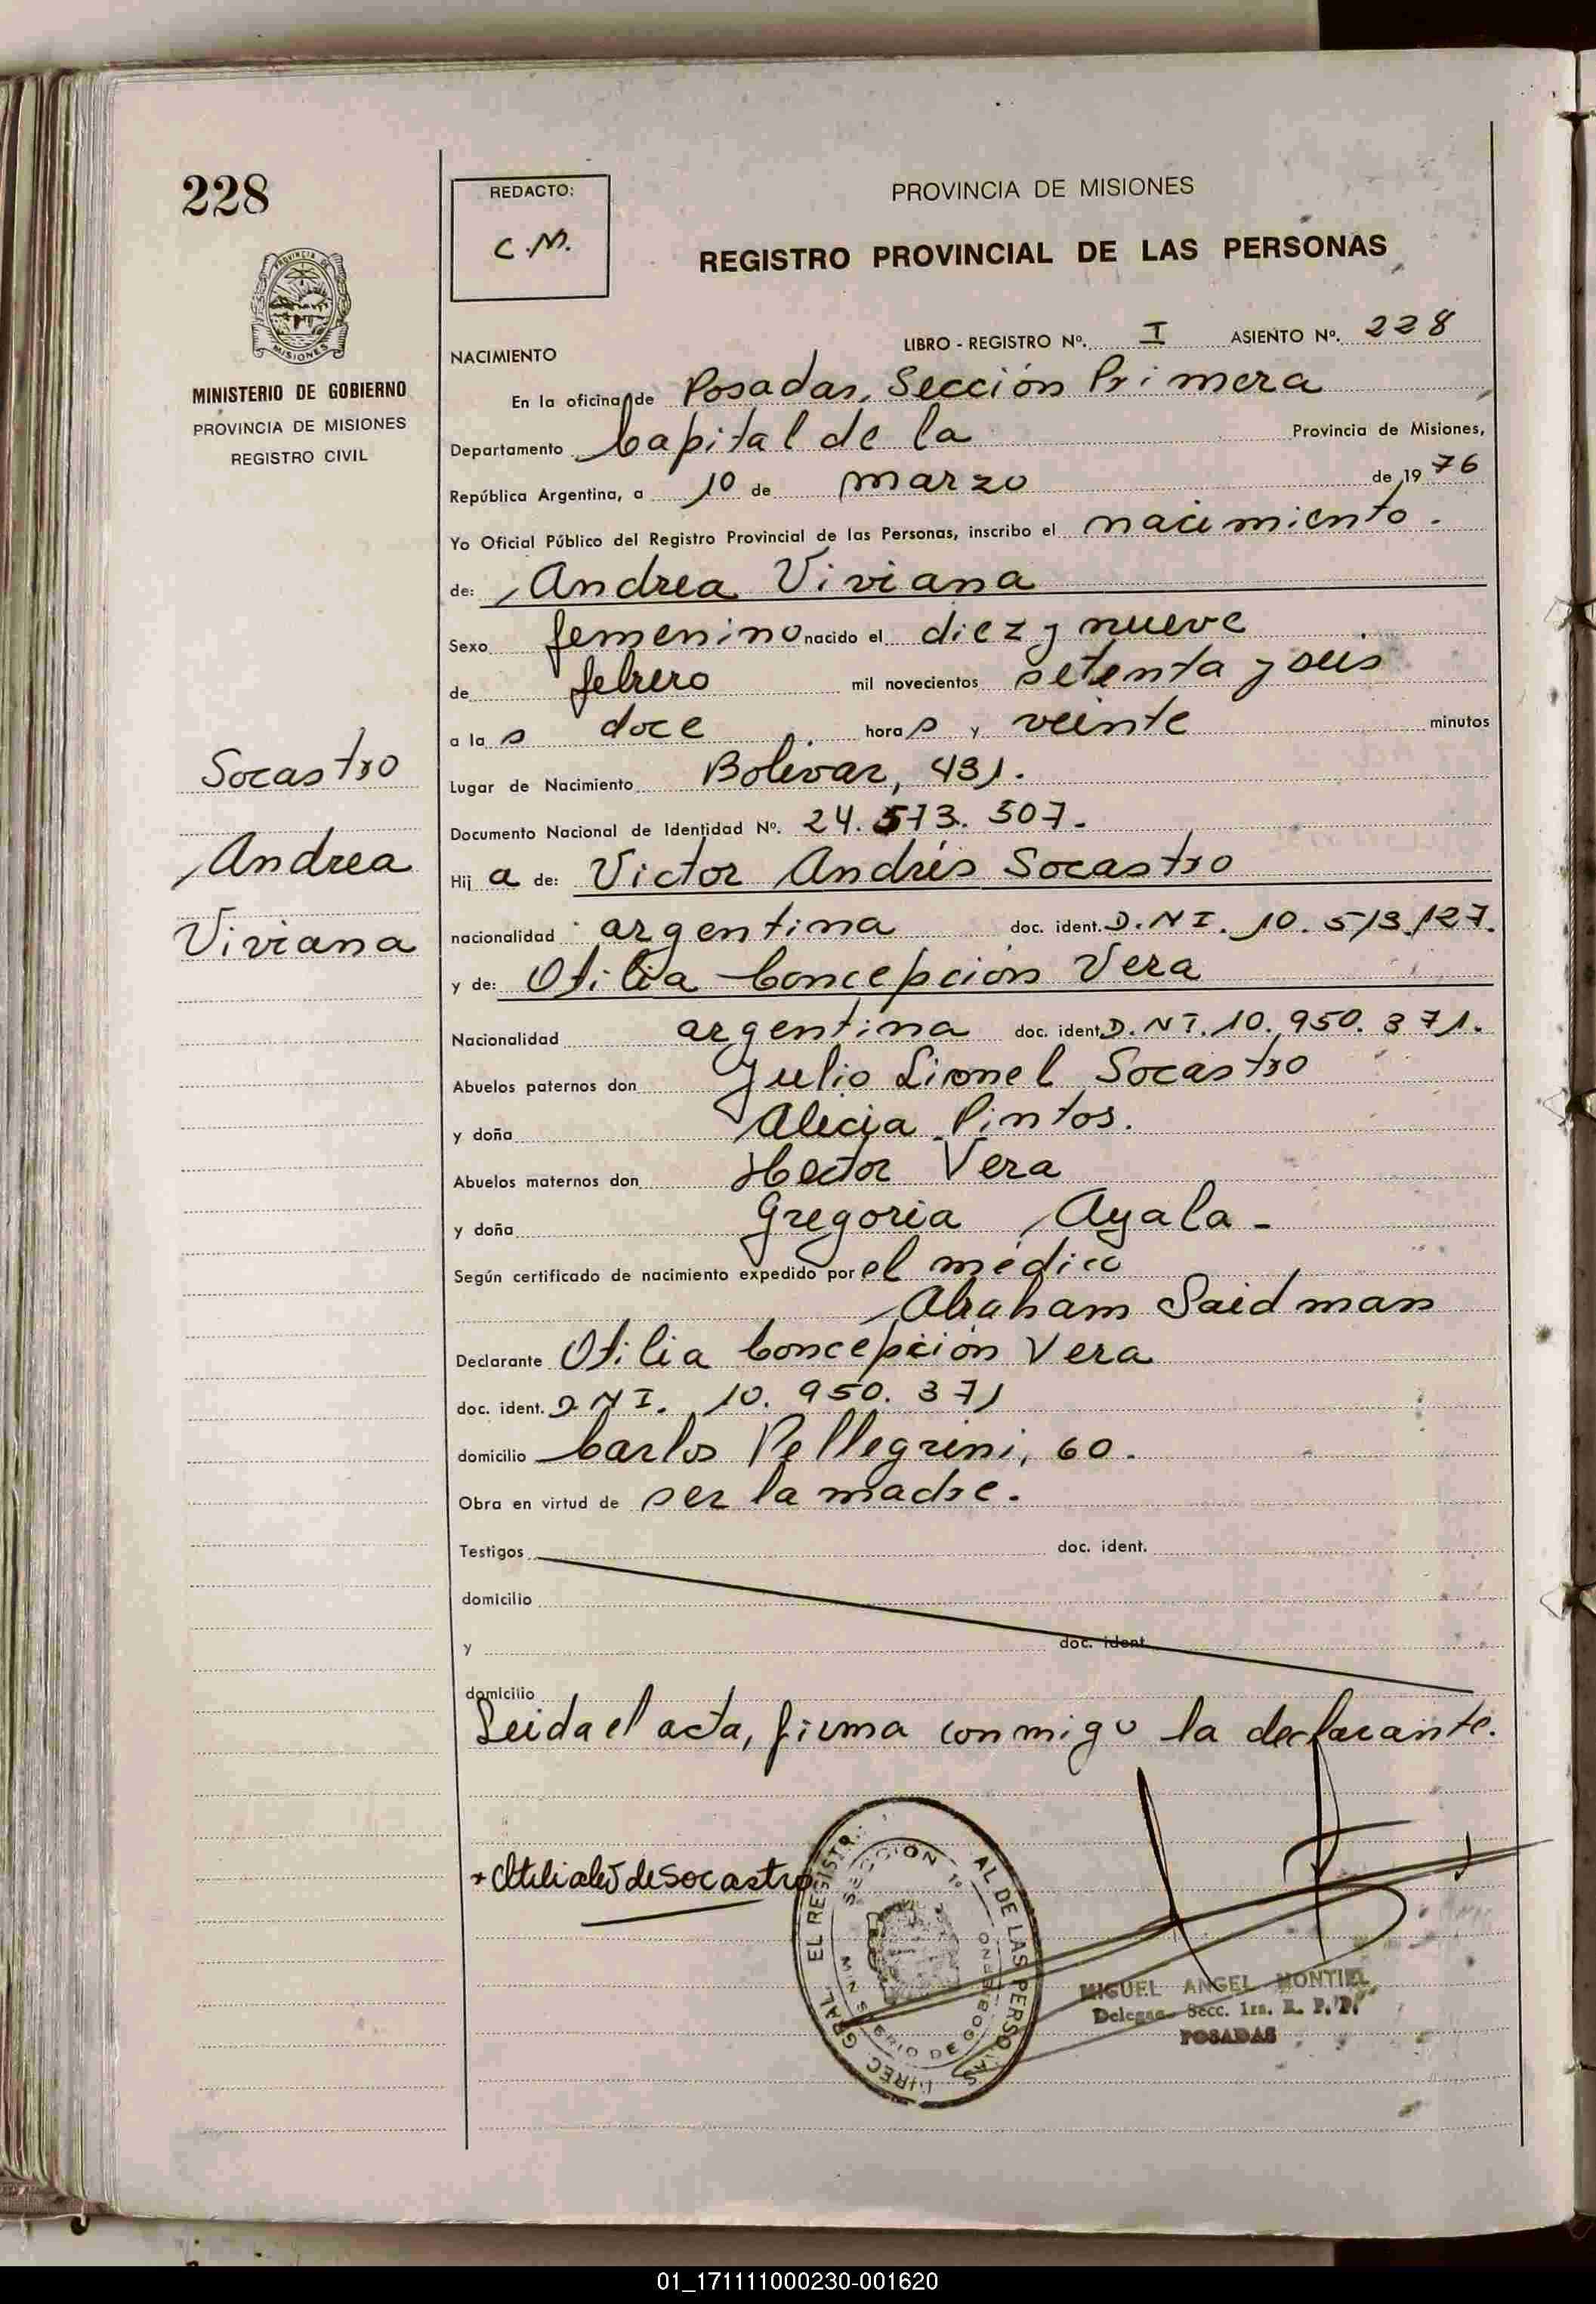 228
REDACTO:
C.M.
PROVINCIA DE MISIONES
REGISTRO PROVINCIAL DE LAS PERSONAS
MISIONES
MINISTERIO DE GOBIERNO
PROVINCIA DE MISIONES
REGISTRO CIVIL
Socastro
Andrea
Viviana
NACIMIENTO
LIBRO - REGISTRO Nº. I ASIENTO Nº. 228
En la oficina de Posadas, Sección Primera
Departamento Capital de la Provincia de Misiones,
República Argentina, a 10 de marzo de 1976
Yo Oficial Público del Registro Provincial de las Personas, inscribo el nacimiento.
de: Andrea Viviana
Sexo femenino nacido el diez y nueve
de febrero mil novecientos setenta y seis
a la s doce hora s y veinte minutos
Lugar de Nacimiento Bolívar, 431.
Documento Nacional de Identidad Nº. 24.573.507.
Hij a de: Victor Andrés Socastro
nacionalidad argentina doc. ident. D.N I. 10.513.127.
y de: Otilia Concepción Vera
Nacionalidad argentina doc. ident. D.N I. 10.950.371.
Abuelos paternos don Julio Lionel Socastro
y doña Alicia Pintos.
Abuelos maternos don Hector Vera
y doña Gregoria Ayala -
Según certificado de nacimiento expedido por el médico
Abraham Saidman
Declarante Otilia Concepción Vera
doc. ident. D N I. 10.950.371
domicilio Carlos Pellegrini, 60.
Obra en virtud de ser la madre.
Testigos doc. ident.
domicilio
y doc. ident.
domicilio
Leida el acta, firma conmigo la declarante.
de Socastro
SECCION 1º
MINISTERIO DE GOBIERNO
MIGUEL ANGEL MONTIEL
Delegado Secc. 1ra. R. P. P.
POSADAS
01_171111000230-001620